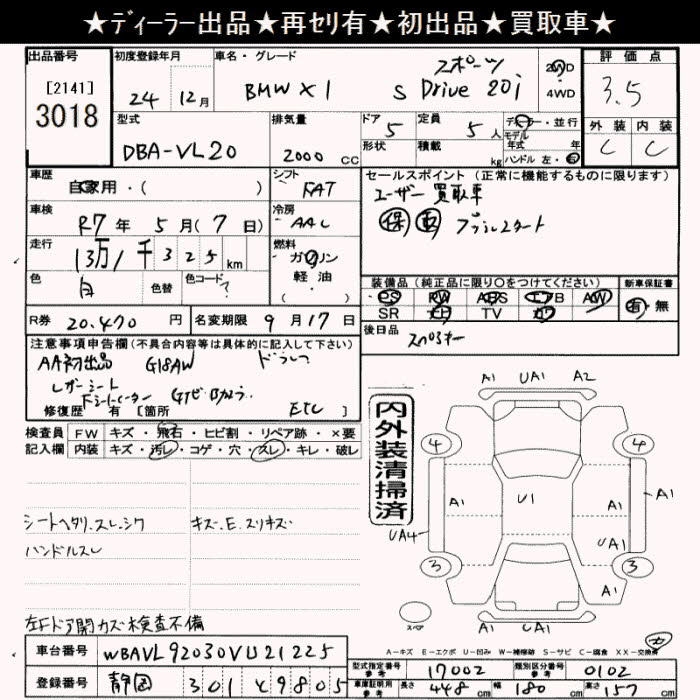 ★ディーラー出品★再セリ有★初出品★買取車★
出品番号 初度登録年月 車名・グレード 評価点
[2141]
3018
24 12月 BMW X1 スポーツ S Drive 20i 2WD 4WD 3.5
型式 排気量 ドア 定員 ディーラー・並行 外装 内装
DBA-VL20 2000 CC 5 5人 モデル 年式 年 C C
形状 積載 kg ハンドル 左・右
車歴 シフト セールスポイント (正常に機能するものに限ります)
自家用・( ) FAT ユーザー買取車
車検 冷房 保 プッシュスタート
R7年 5月(7日) AAC
走行 燃料
13万1千325km ガソリン
軽油
色 色替 色コード 装備品 (純正品に限り○をつけてください) 新車保証書
白 ? PS PW ABS エアB AW 有・無
SR TV
R券 20.470円 名変期限 9月17日 後日品
注意事項申告欄(不具合内容等は具体的に記入して下さい) スペアキー
AA初出品 G18AW ドラレコ
レザーシート
ETC
修復歴 有 [箇所 ]
検査員 FW キズ・飛石・ヒビ割・リペア跡・×要
記入欄 内装 キズ・汚レ・コゲ・穴・スレ・キレ・破レ
内外装清掃済
シートヘタリ.スレ.シワ キズ.E.スリキズ
ハンドルスレ
A1 UA1 A2
4 4
A1 U1 A1 A1
UA4 A1 UA1
3 A1 3
UA1
スペア
左Fドア開カズ検査不備
A-キズ E-エクボ U-凹み W-補修跡 S-サビ C-腐食 XX-交換済
車台番号 WBAVL92030VU21225 型式指定番号 参考 17002 類別区分番号 参考 0102
登録番号 静岡 301 そ 9805 車庫証明用 参考 長さ 448cm 幅 180cm 高さ 157cm